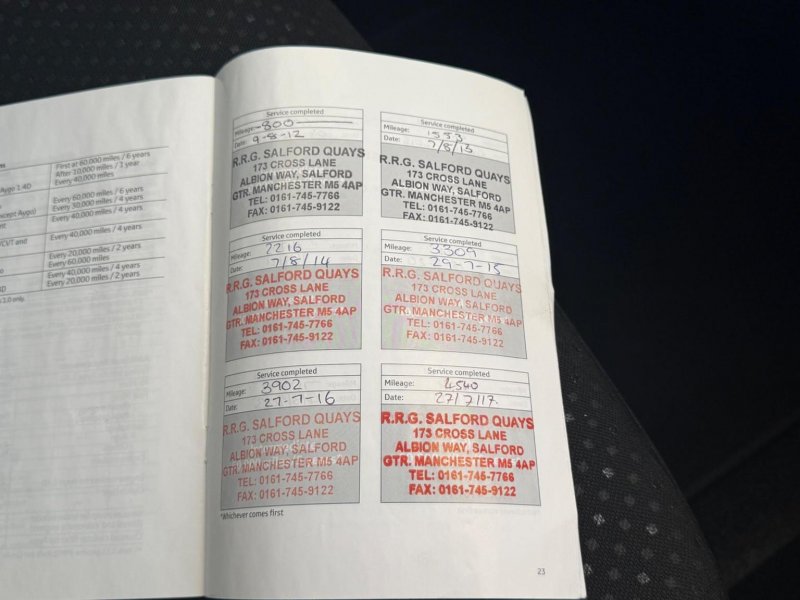 ss
First at 60,000 miles / 6 years
After 10,000 miles / 1 year
Aygo 1.4D
Every 40,000 miles
Every 60,000 miles / 6 years
Every 30,000 miles / 4 years
xcept Aygo)
Every 40,000 miles / 4 years
nt
/CVT and
Every 40,000 miles / 4 years
Every 20,000 miles / 2 years
o
Every 60,000 miles
Every 40,000 miles / 4 years
D
Every 20,000 miles / 2 years
3.0 only.
Service completed
Mileage: 800
Date: 9-8-12
R.R.G. SALFORD QUAYS
173 CROSS LANE
ALBION WAY, SALFORD
GTR. MANCHESTER M5 4AP
TEL: 0161-745-7766
FAX: 0161-745-9122
Service completed
Mileage: 1553
Date: 7/8/13
R.R.G. SALFORD QUAYS
173 CROSS LANE
ALBION WAY, SALFORD
GTR. MANCHESTER M5 4AP
TEL: 0161-745-7766
FAX: 0161-745-9122
Service completed
Mileage: 2216
Date: 7/8/14
R.R.G. SALFORD QUAYS
173 CROSS LANE
ALBION WAY, SALFORD
GTR. MANCHESTER M5 4AP
TEL: 0161-745-7766
FAX: 0161-745-9122
Service completed
Mileage: 3309
Date: 29-7-15
R.R.G. SALFORD QUAYS
173 CROSS LANE
ALBION WAY, SALFORD
GTR. MANCHESTER M5 4AP
TEL: 0161-745-7766
FAX: 0161-745-9122
Service completed
Mileage: 3902
Date: 27-7-16
R.R.G. SALFORD QUAYS
173 CROSS LANE
ALBION WAY, SALFORD
GTR. MANCHESTER M5 4AP
TEL: 0161-745-7766
FAX: 0161-745-9122
Service completed
Mileage: 4540
Date: 27/7/17.
R.R.G. SALFORD QUAYS
173 CROSS LANE
ALBION WAY, SALFORD
GTR. MANCHESTER M5 4AP
TEL: 0161-745-7766
FAX: 0161-745-9122
*Whichever comes first
23